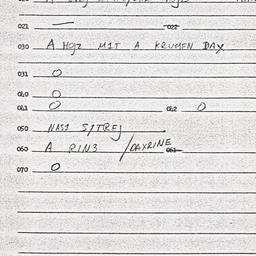 021 — 022
030 A HOJZ MIT A KRUMEN DAX
031 O
040 O
041 O 042 O
050 NASI SPTREJ
060 A RINS /DAXRINE 061
070 O